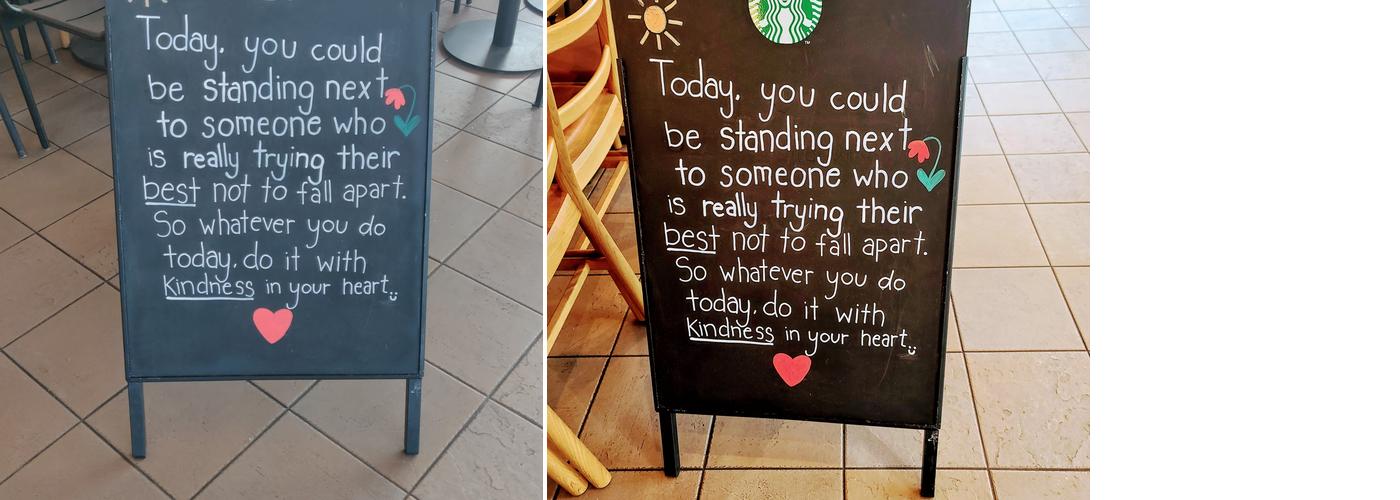 Today, you could
be standing next
to someone who
is really trying their
best not to fall apart.
So whatever you do
today, do it with
Kindness in your heart.
Today, you could
be standing next
to someone who
is really trying their
best not to fall apart.
So whatever you do
today, do it with
Kindness in your heart.